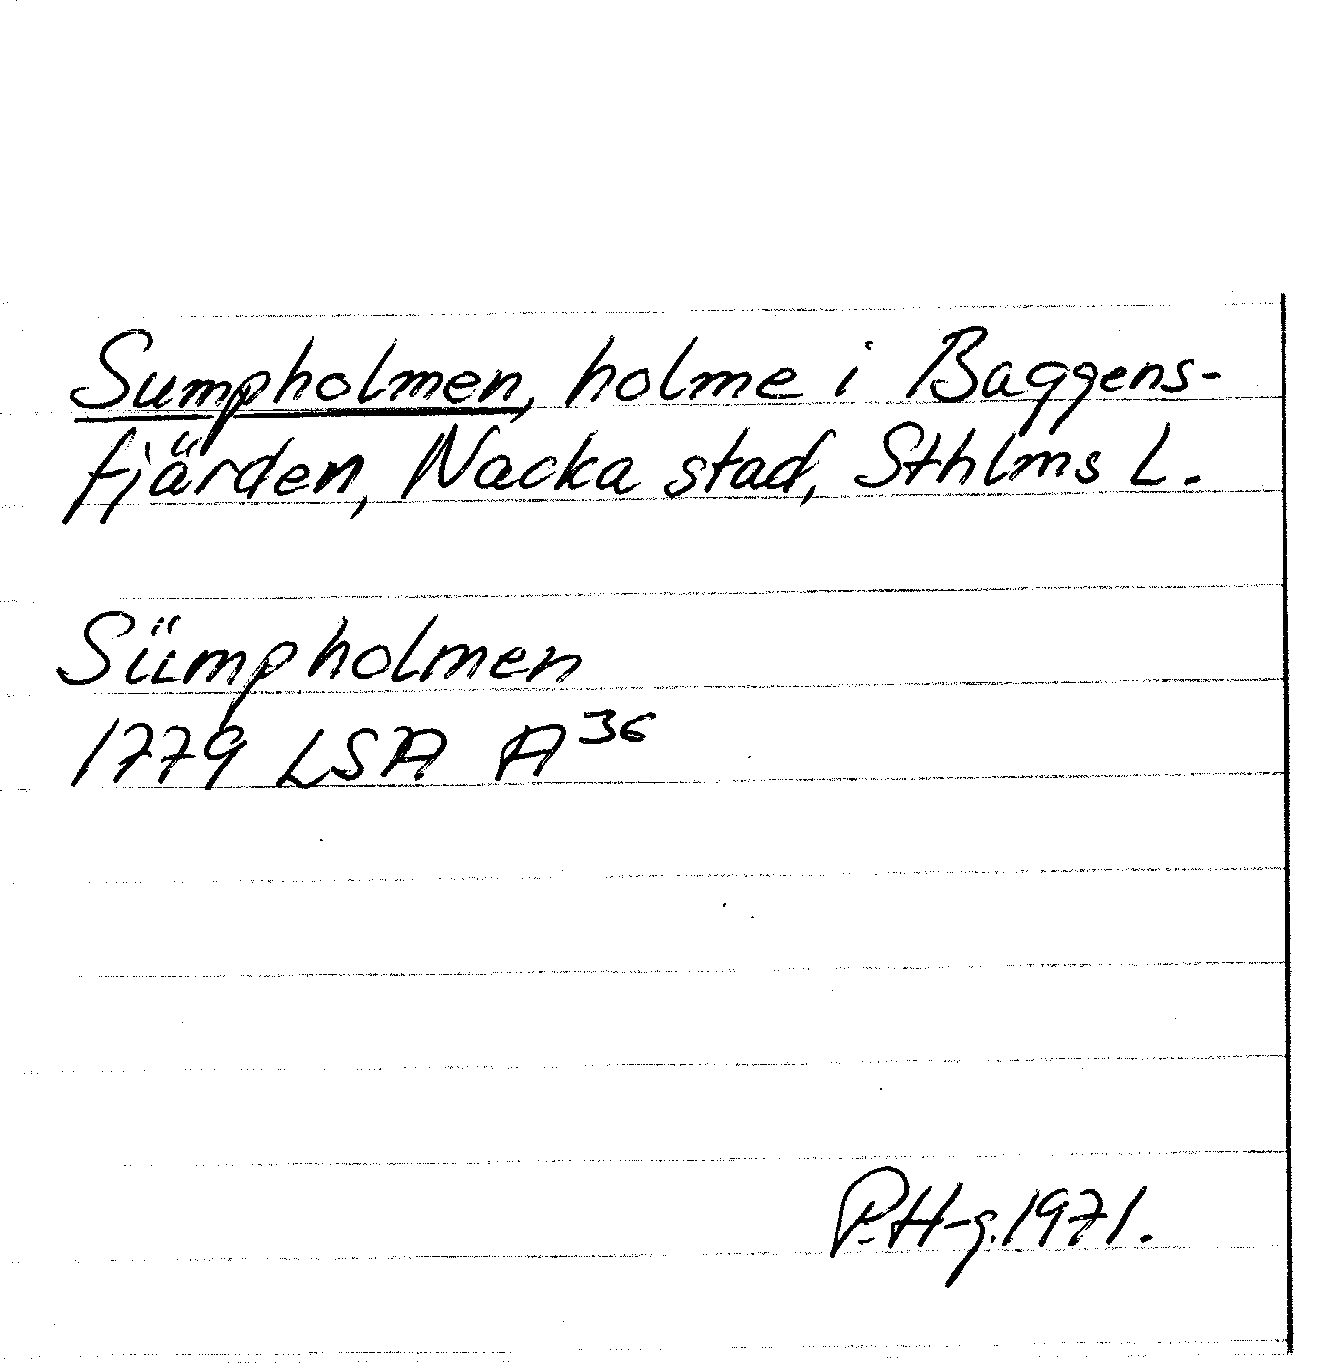 Sumpholmen, holme i Baggens-
fjärden, Nacka stad, Sthlms L.
Sümpholmen
1779 LSA A³⁶
P.H-g.1971.